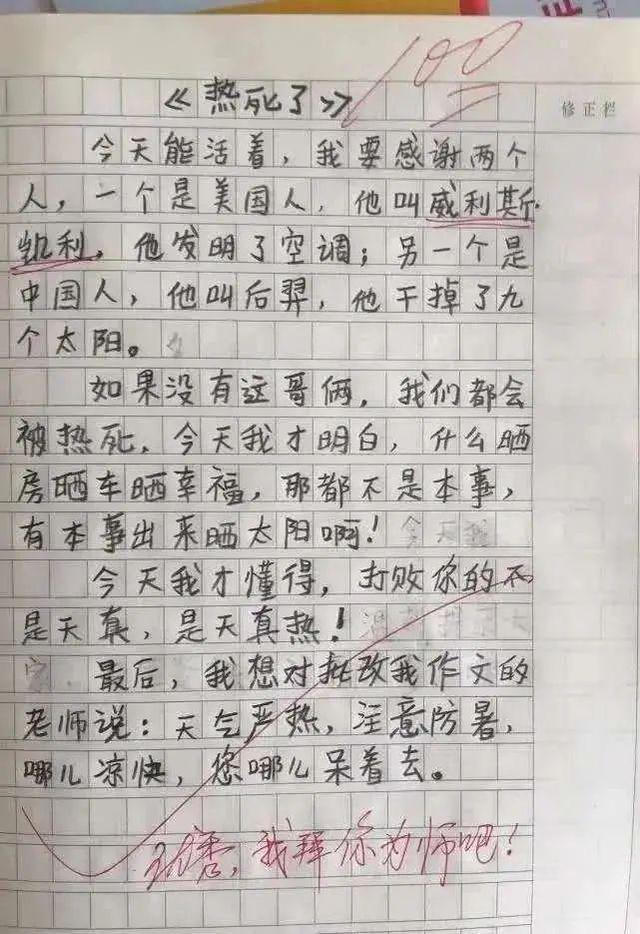 100
修正栏
《热死了》
今天能活着，我要感谢两个
人，一个是美国人，他叫威利斯·
凯利，他发明了空调；另一个是
中国人，他叫后羿，他干掉了九
个太阳。
如果没有这哥俩，我们都会
被热死，今天我才明白，什么晒
房晒车晒幸福，那都不是本事，
有本事出来晒太阳啊！
今天我才懂得，打败你的不
是天真，是天真热！
最后，我想对批改我作文的
老师说：天气严热，注意防暑，
哪儿凉快，您哪儿呆着去。
优秀，我拜你为师吧！